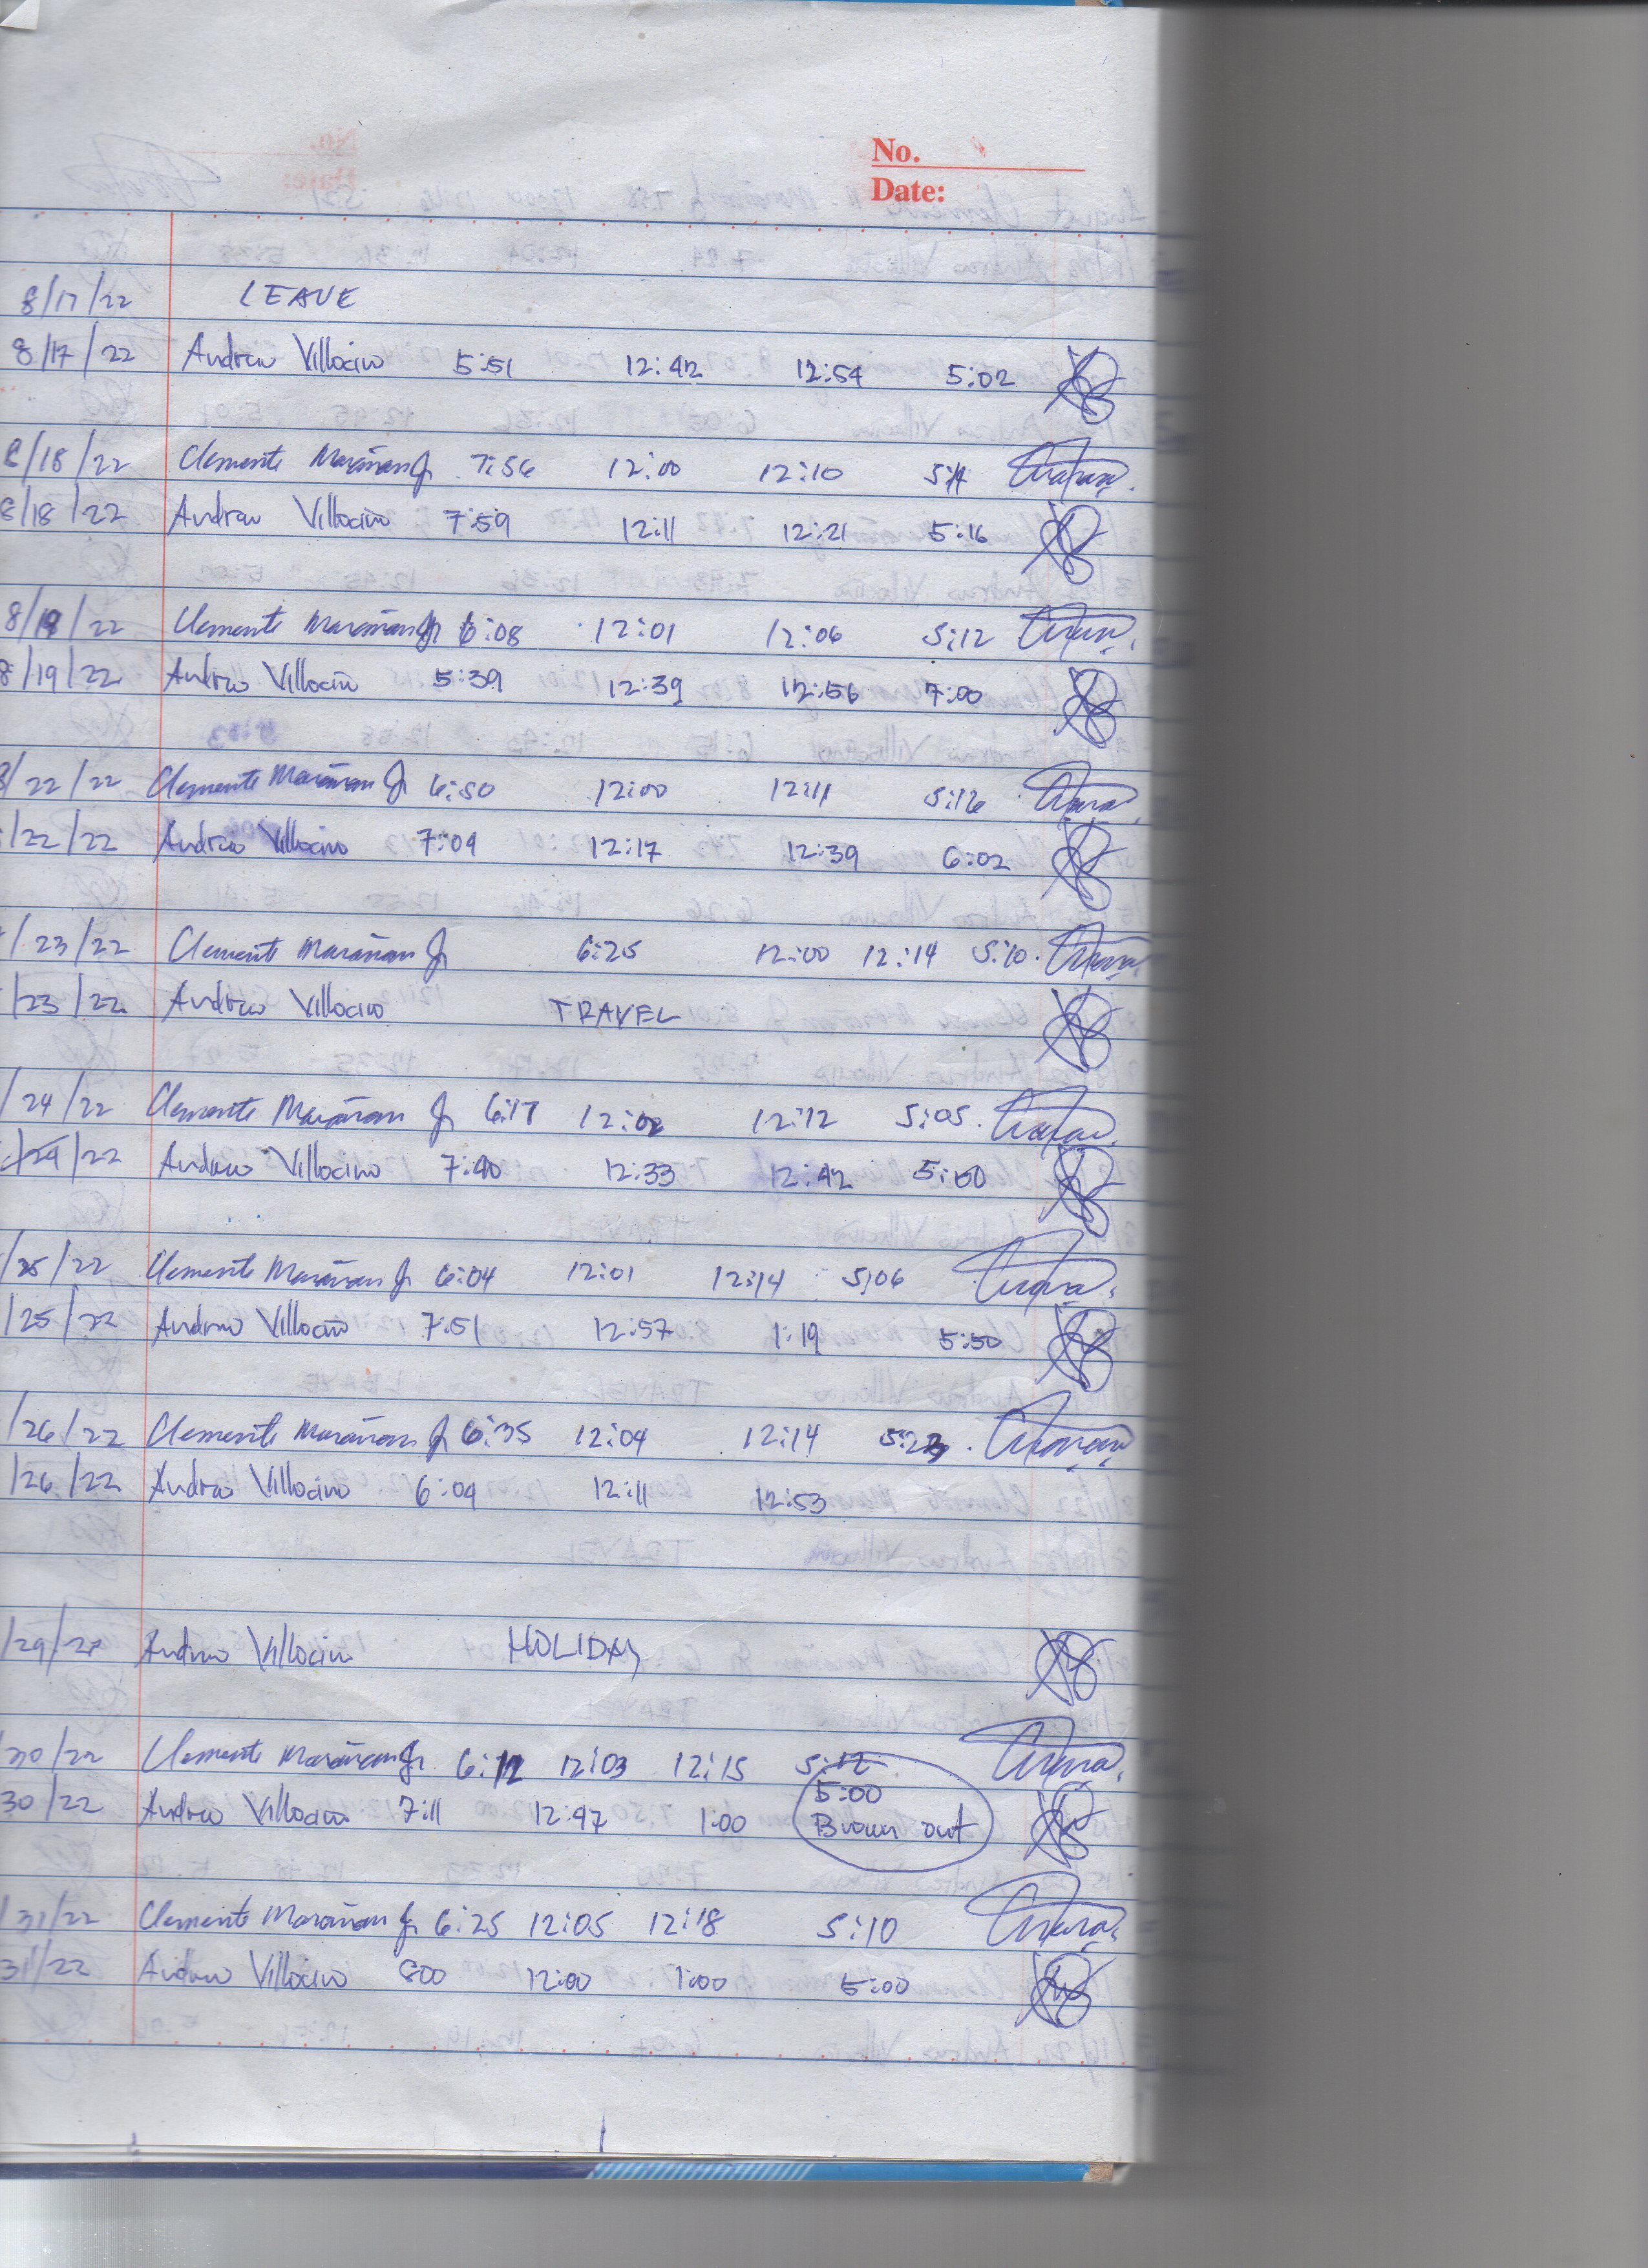 No.
Date:
8/17/22 LEAVE
8/17/22 Andrew Villocino 5:51 12:42 12:54 5:02
8/18/22 Clemente Marañon Jr 7:56 12:00 12:10 5:11
8/18/22 Andrew Villocino 7:59 12:11 12:21 5:16
8/19/22 Clemente Marañon Jr 6:08 12:01 12:06 5:12
8/19/22 Andrew Villocino 5:39 12:39 12:56 7:00
8/22/22 Clemente Marañon Jr 6:50 12:00 12:11 5:16
/22/22 Andrew Villocino 7:04 12:17 12:39 6:02
/23/22 Clemente Marañon Jr 6:25 12:00 12:14 5:10
/23/22 Andrew Villocino TRAVEL
/24/22 Clemente Marañon Jr 6:17 12:02 12:12 5:05
/24/22 Andrew Villocino 7:40 12:33 12:42 5:00
/25/22 Clemente Marañon Jr 6:04 12:01 12:14 5:06
/25/22 Andrew Villocino 7:51 12:57 1:19 5:50
/26/22 Clemente Marañon Jr 6:35 12:04 12:14 5:23
/26/22 Andrew Villocino 6:09 12:11 12:53
/29/22 Andrew Villocino HOLIDAY
/30/22 Clemente Marañon Jr 6:12 12:03 12:15 5:12
30/22 Andrew Villocino 7:11 12:47 1:00 5:00 Brown out
/31/22 Clemente Marañon Jr 6:25 12:05 12:18 5:10
31/22 Andrew Villocino 800 12:00 1:00 5:00